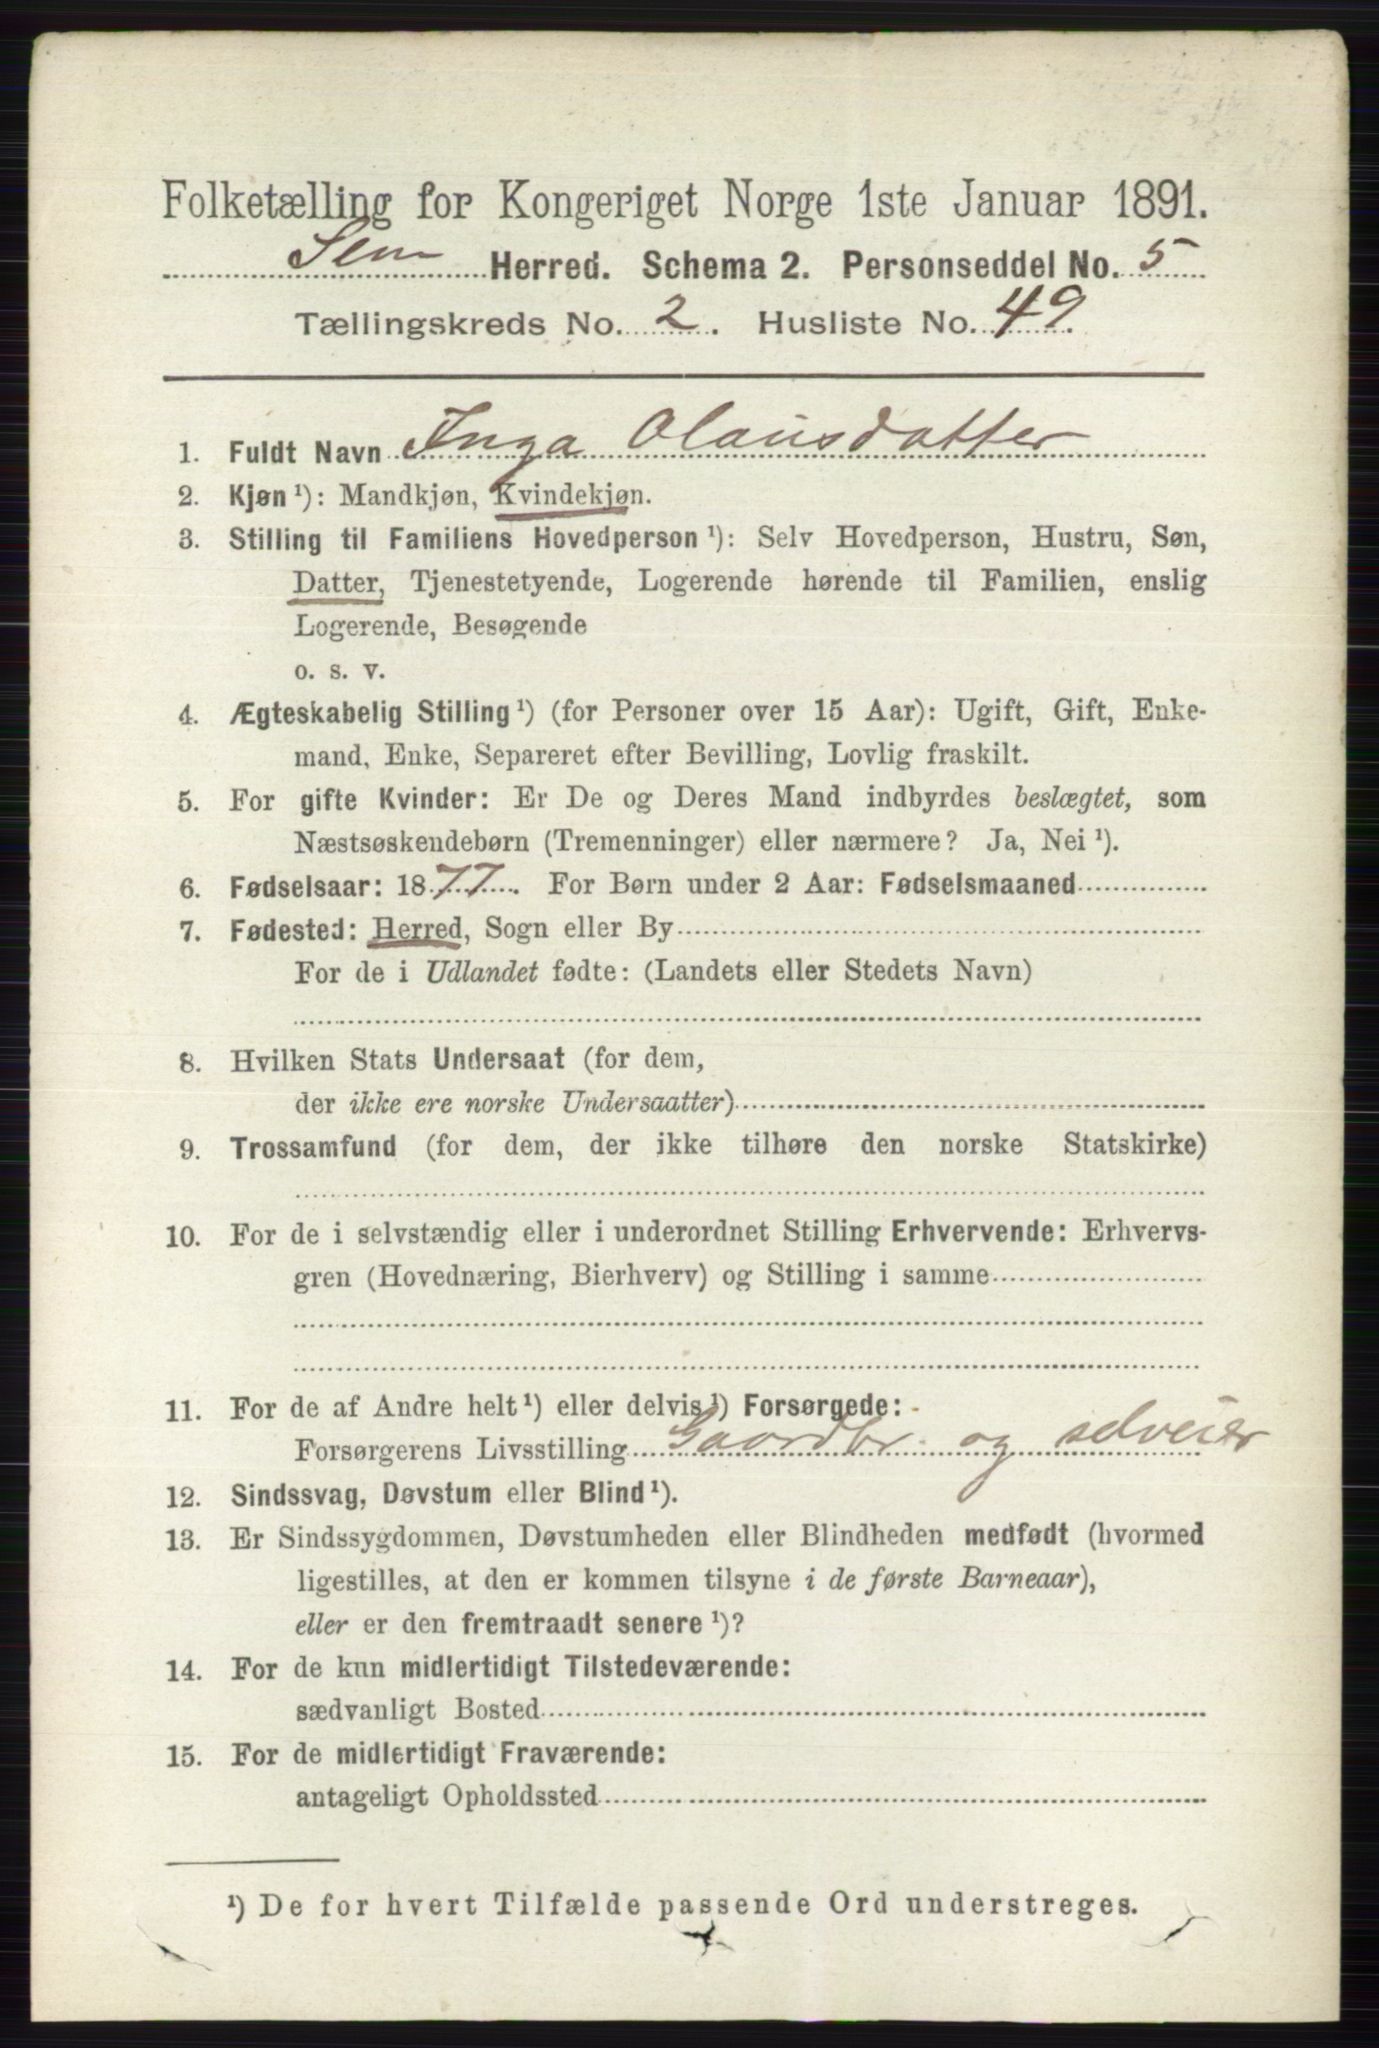 Folketælling for Kongeriget Norge 1ste Januar 1891.
Sem Herred. Schema 2. Personseddel No. 5
Tællingskreds No. 2. Husliste No. 49.
1. Fuldt Navn Inga Olausdatter
2. Kjøn ¹): Mandkjøn, Kvindekjøn.
3. Stilling til Familiens Hovedperson ¹): Selv Hovedperson, Hustru, Søn,
Datter, Tjenestetyende, Logerende hørende til Familien, enslig
Logerende, Besøgende
o. s. v.
4. Ægteskabelig Stilling ¹) (for Personer over 15 Aar): Ugift, Gift, Enke-
mand, Enke, Separeret efter Bevilling, Lovlig fraskilt.
5. For gifte Kvinder: Er De og Deres Mand indbyrdes beslægtet, som
Næstsøskendebørn (Tremenninger) eller nærmere? Ja, Nei ¹).
6. Fødselsaar: 1877. For Børn under 2 Aar: Fødselsmaaned
7. Fødested: Herred, Sogn eller By
For de i Udlandet fødte: (Landets eller Stedets Navn)
8. Hvilken Stats Undersaat (for dem,
der ikke ere norske Undersaatter)
9. Trossamfund (for dem, der ikke tilhøre den norske Statskirke)
10. For de i selvstændig eller i underordnet Stilling Erhvervende: Erhvervs-
gren (Hovednæring, Bierhverv) og Stilling i samme
11. For de af Andre helt ¹) eller delvis ¹) Forsørgede:
Forsørgerens Livsstilling Gaardbr. og selveier
12. Sindssvag, Døvstum eller Blind ¹).
13. Er Sindssygdommen, Døvstumheden eller Blindheden medfødt (hvormed
ligestilles, at den er kommen tilsyne i de første Barneaar),
eller er den fremtraadt senere ¹)?
14. For de kun midlertidigt Tilstedeværende:
sædvanligt Bosted
15. For de midlertidigt Fraværende:
antageligt Opholdssted
¹) De for hvert Tilfælde passende Ord understreges.